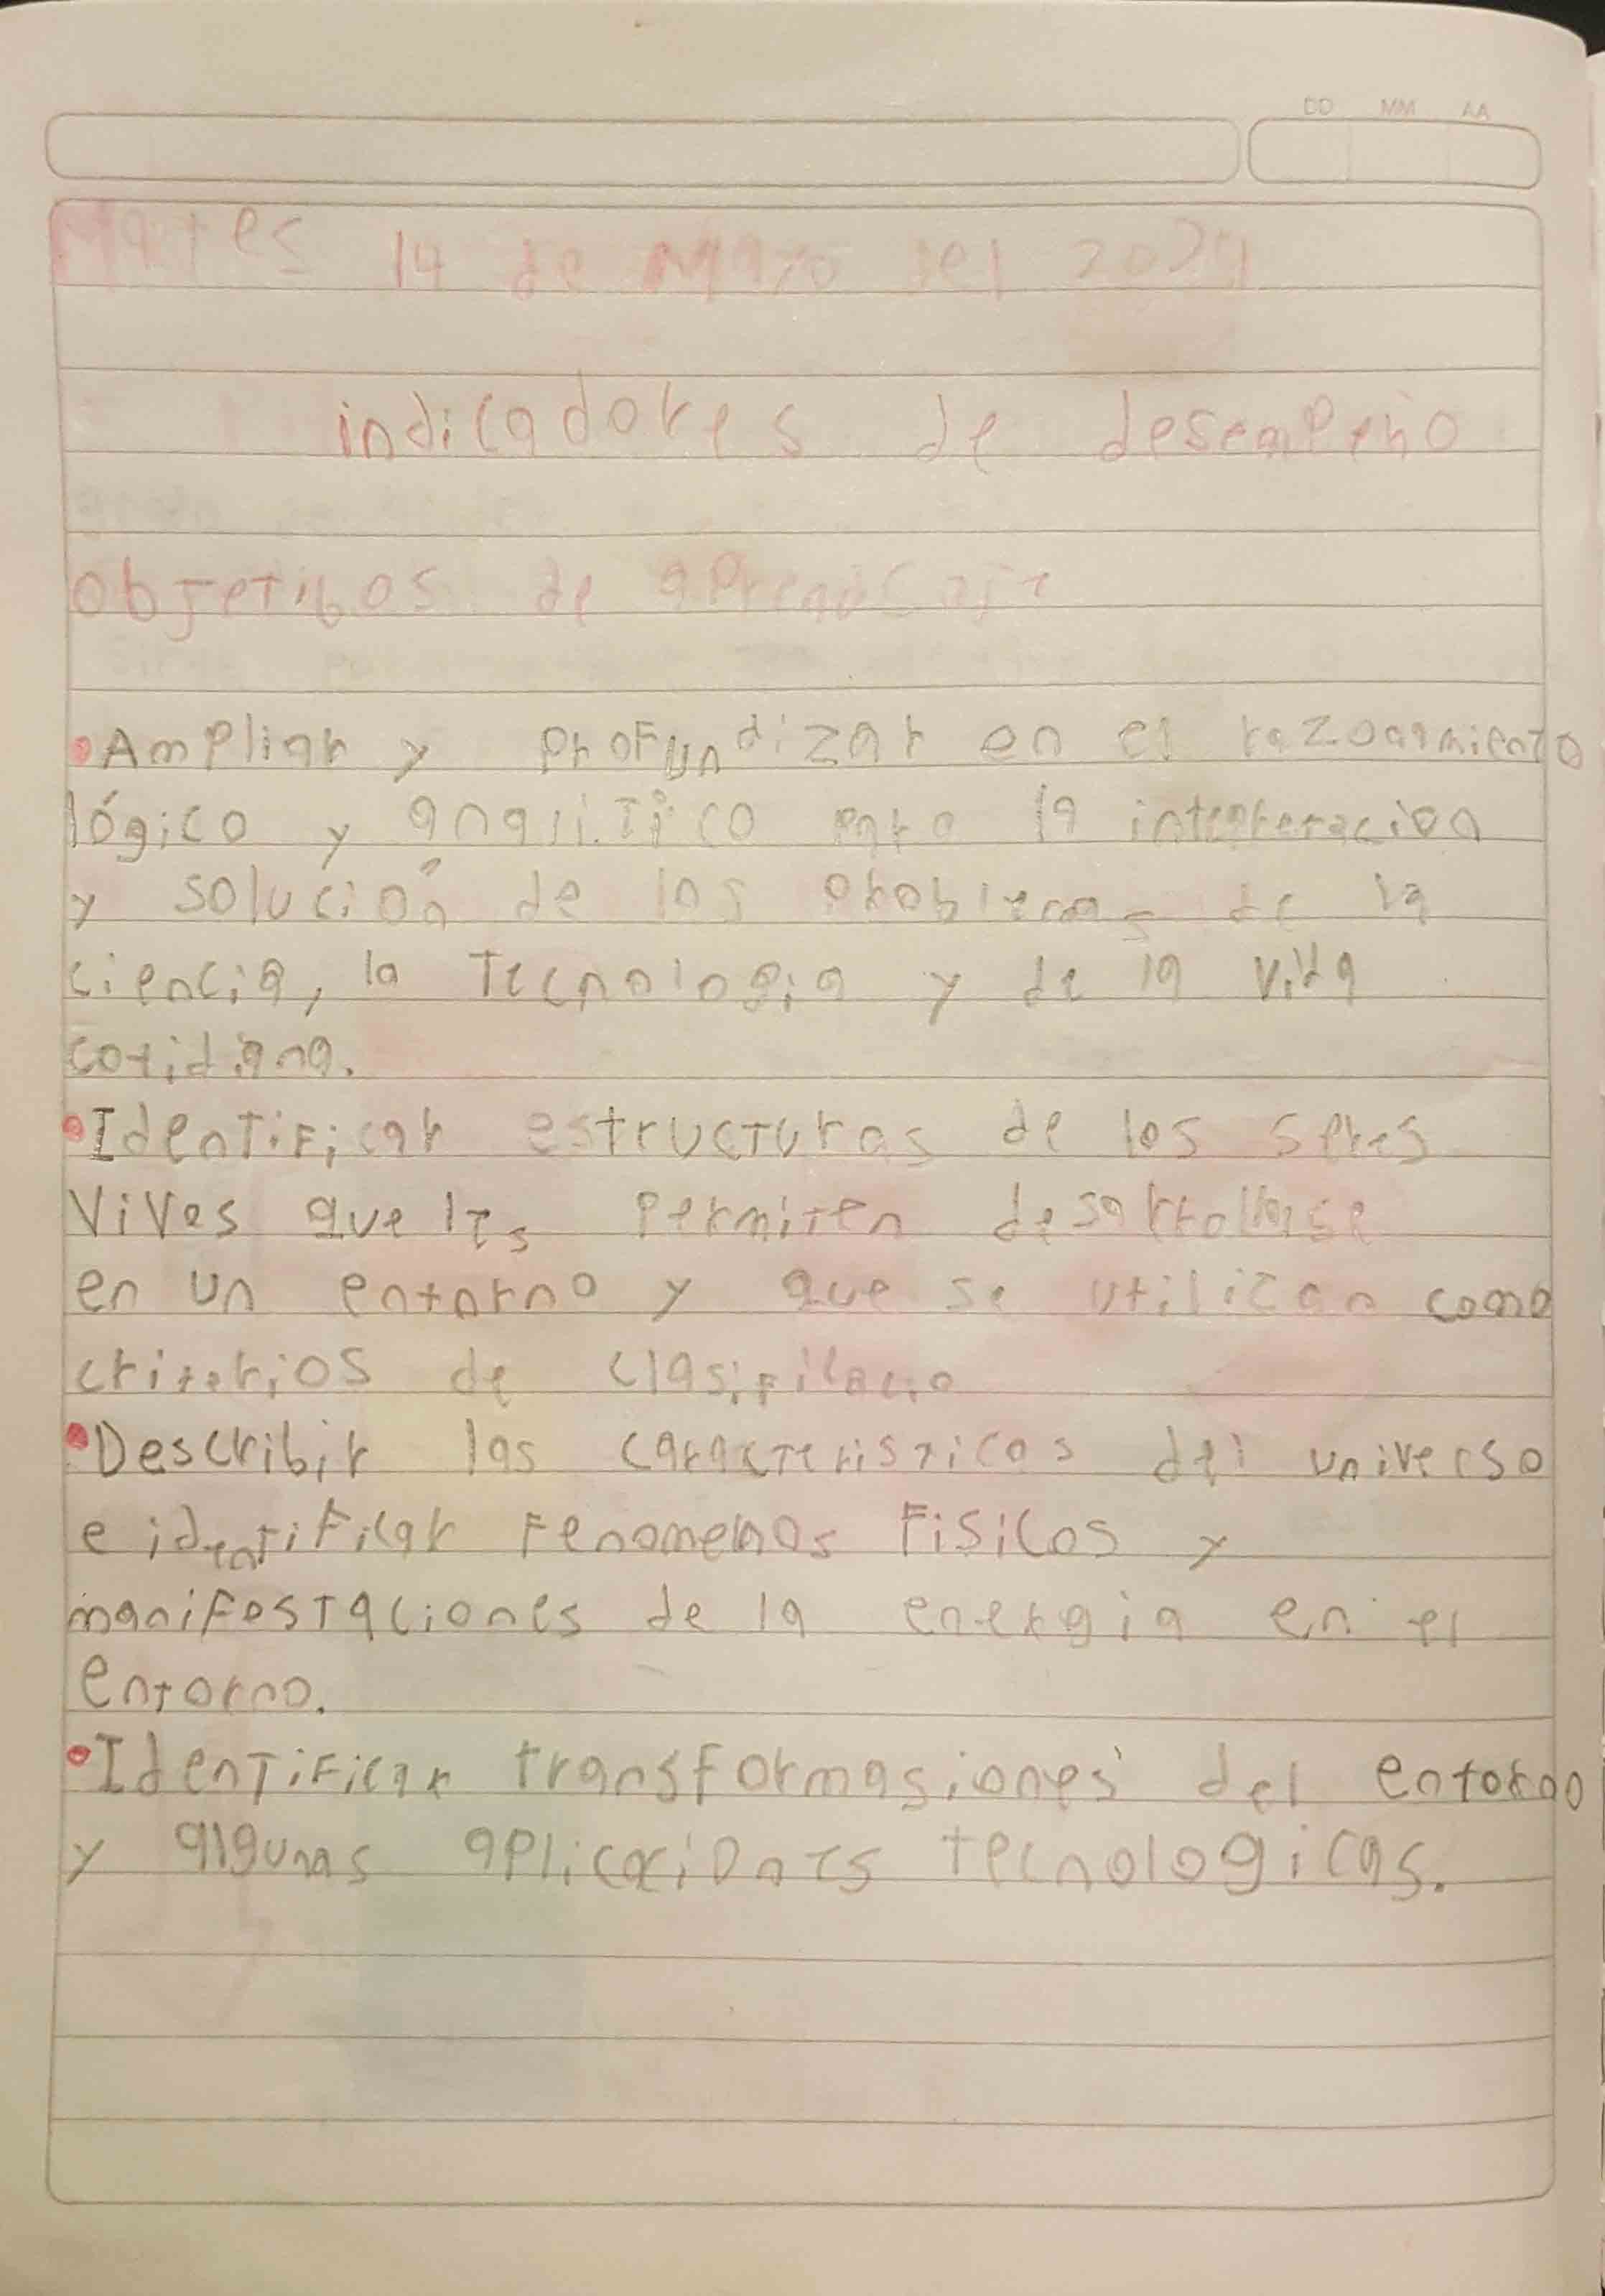 DD MM AA
Martes 14 de Mayo del 2024
indicadores de desempeño
objetibos de aprendisaje
•Ampliar y profundizar en el razonamiento
lógico y analitico para la interpretacion
y solución de los problemas de la
ciencia, la Tecnologia y de la vida
cotidiana.
•Identificar estructuras de los seres
vivos que les permiten desarrollarse
en un entorno y que se utilizan como
criterios de clasificacio
•Describir las caracteristicas del universo
e identificar fenomenos Fisicos y
manifestaciones de la energia en el
entorno.
•Identificar transformasiones del entorno
y algunas aplicaciones tecnologicas.